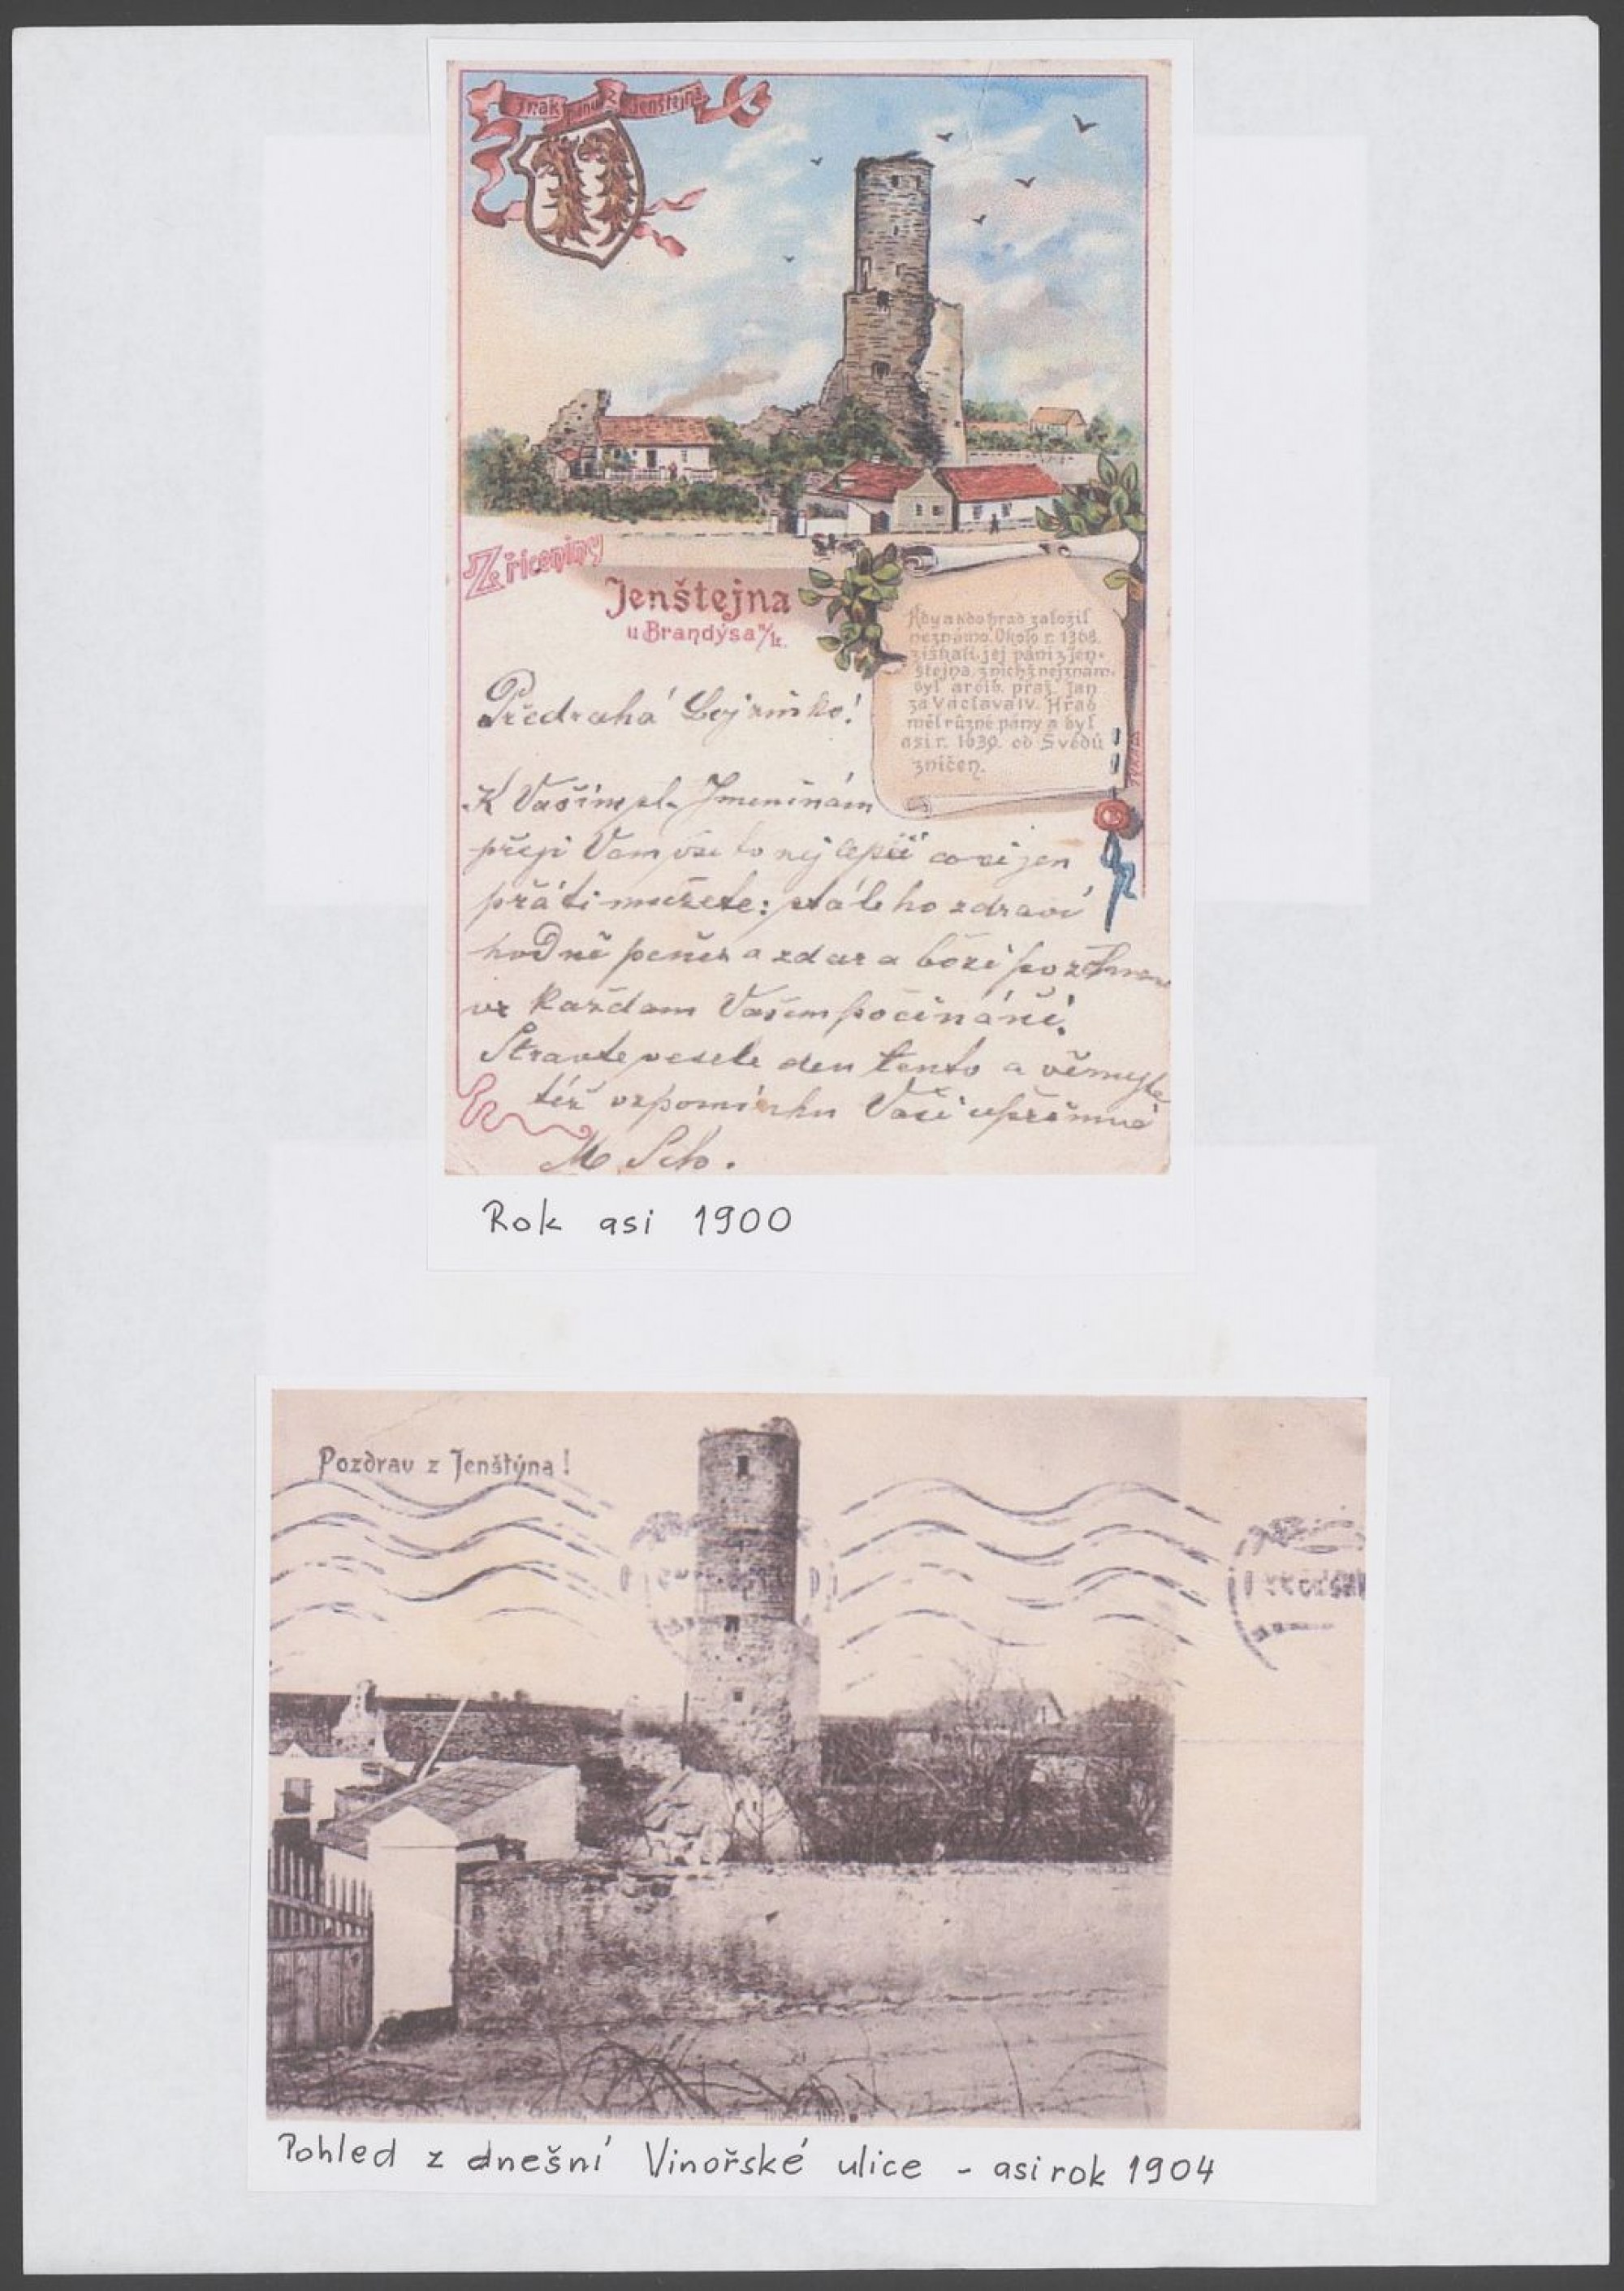 Znak pánů z Jenštejna
Ze zříceniny
Jenštejna
u Brandýsa n/L.
Kdy a kdo hrad založil
neznámo. Okolo r. 1368.
získali jej páni z Jen-
štejna, z nichž nejznám.
byl arcib. praž. Jan
za Václava IV. Hrad
měl různé pány a byl
asi r. 1639. od Švédů
zničen.
Předrahá
K Vašim Jmeninám
přeji Vam vše to nej lepší co si jen
přáti mužete: stáleho zdraví
hodně peněz a zdar a boží
ve každam Vašem počínání.
Stravte vesele den tento a
též vzpomínku Vaší upřímné
M Sch.
Rok asi 1900
Pozdrav z Jenštýna!
Pohled z dnešní Vinořské ulice - asi rok 1904